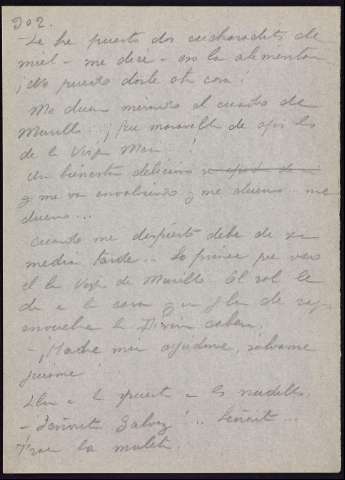 202.
- Le he puesto dos cucharaditas de
miel - me dice - eso la alimentará
¡No puedo darle otra cosa!
Me duermo mirando el cuadro de
Murillo. ¡Qué maravilla de ojos los
de la Virgen María!
Un bienestar delicioso
y me va envolviendo y me duermo... me
duermo...
Cuando me despierto debe de ser
media tarde. Lo primero que veo
es la Virgen de Murillo. El sol le
da en la cara y un plan de
envuelve la Divina cabeza.
- ¡Madre mía ayúdame, sálvame
guíame!
Llaman a la puerta con los nudillos.
- ¡Señorita Galvez! .. Señorita...
Traen la maleta.